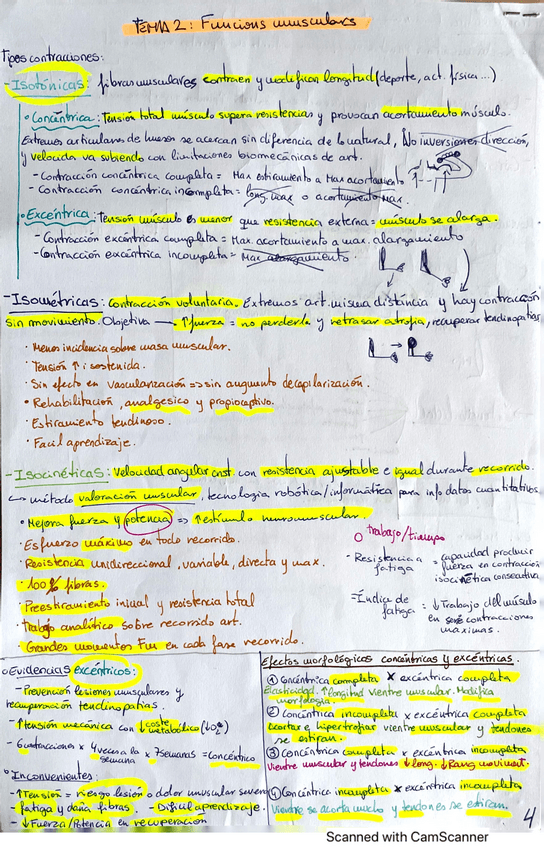 TEMA 2: Funcions musculars
Tipos contracciones:
- Isotónicas: fibras musculares contraen y modifican longitud (deporte, act. física...)
° Concéntrica: Tensión total músculo supera resistencias y provocan acortamiento músculo.
Extremos articulares de huesos se acercan sin diferencia de lo natural, No inversiones dirección,
y velocida va subiendo con limitaciones biomecánicas de art.
- Contracción concéntrica completa = Max estiramiento a Max acortamiento
- Contracción concéntrica incompleta = long. max o acortamiento max.
° Excéntrica: Tensión músculo es menor que resistencia externa = músculo se alarga.
- Contracción excéntrica completa = Max. acortamiento a max. alargamiento
- Contracción excéntrica incompleta = Max alargamiento.
- Isométricas: contracción voluntaria. Extremos art. misma distancia y hay contracción
sin movimiento. Objetivo → ↑fuerza = no perderla y retrasar atrofia, recuperar tendinopatias
· Menos incidencia sobre masa muscular.
· Tensión ↑ i sostenida.
· Sin efecto en vascularización => sin augmento de capilarización.
· Rehabilitación, analgesico y propioceptivo.
· Estiramiento tendinoso.
· Facil aprendizaje.
- Isocinéticas: Velocidad angular cnst. con resistencia ajustable e igual durante recorrido.
↳ método valoración muscular, tecnologia robótica/informática para info datos cuantitativos
· Mejora fuerza y potencia => ↑estímulo neuromuscular.
O trabajo/tiempo
· Esfuerzo máximo en todo recorrido.
· Resistencia unidireccional, variable, directa y max.
· 100% fibras.
· Preestiramiento inicial y resistencia total
· Trabajo analítico sobre recorrido art.
· Grandes momentos Fm en cada fase recorrido.
- Resistencia a fatiga = capacidad producir fuerza en contracción isocinética consecutiva
= Índice de fatiga = ↓Trabajo del músculo en contracciones maximas.
° Evidencias excéntricos:
- Prevención lesiones musculares y
recuperación tendinopatias.
- ↑tensión mecánica con ↓coste metabólico (↓O2)
- 6 contracciones x 4 veces a la semana x 7 semanas = concéntrico
° Inconvenientes:
- ↑Tensión = riesgo lesión o dolor muscular severo
fatiga y daña fibras. - Dificil aprendizaje.
- ↓Fuerza/Potencia en recuperación
Efectos morfológicos concéntricas y excéntricas.
① Concéntrica completa x excéntrica completa
Elasticidad. ↑longitud vientre muscular. Modifica
morfologia.
② Concéntrica incompleta x excéntrica completa
acortar e hipertrofiar vientre muscular y tendones
se estiran.
③ Concéntrica completa x excéntrica incompleta
Vientre muscular y tendones ↓long. ↓Rang moviment.
④ Concéntrica incompleta x excéntrica incompleta
Vientre se acorta mucho y tendones se estiran.
4
Scanned with CamScanner